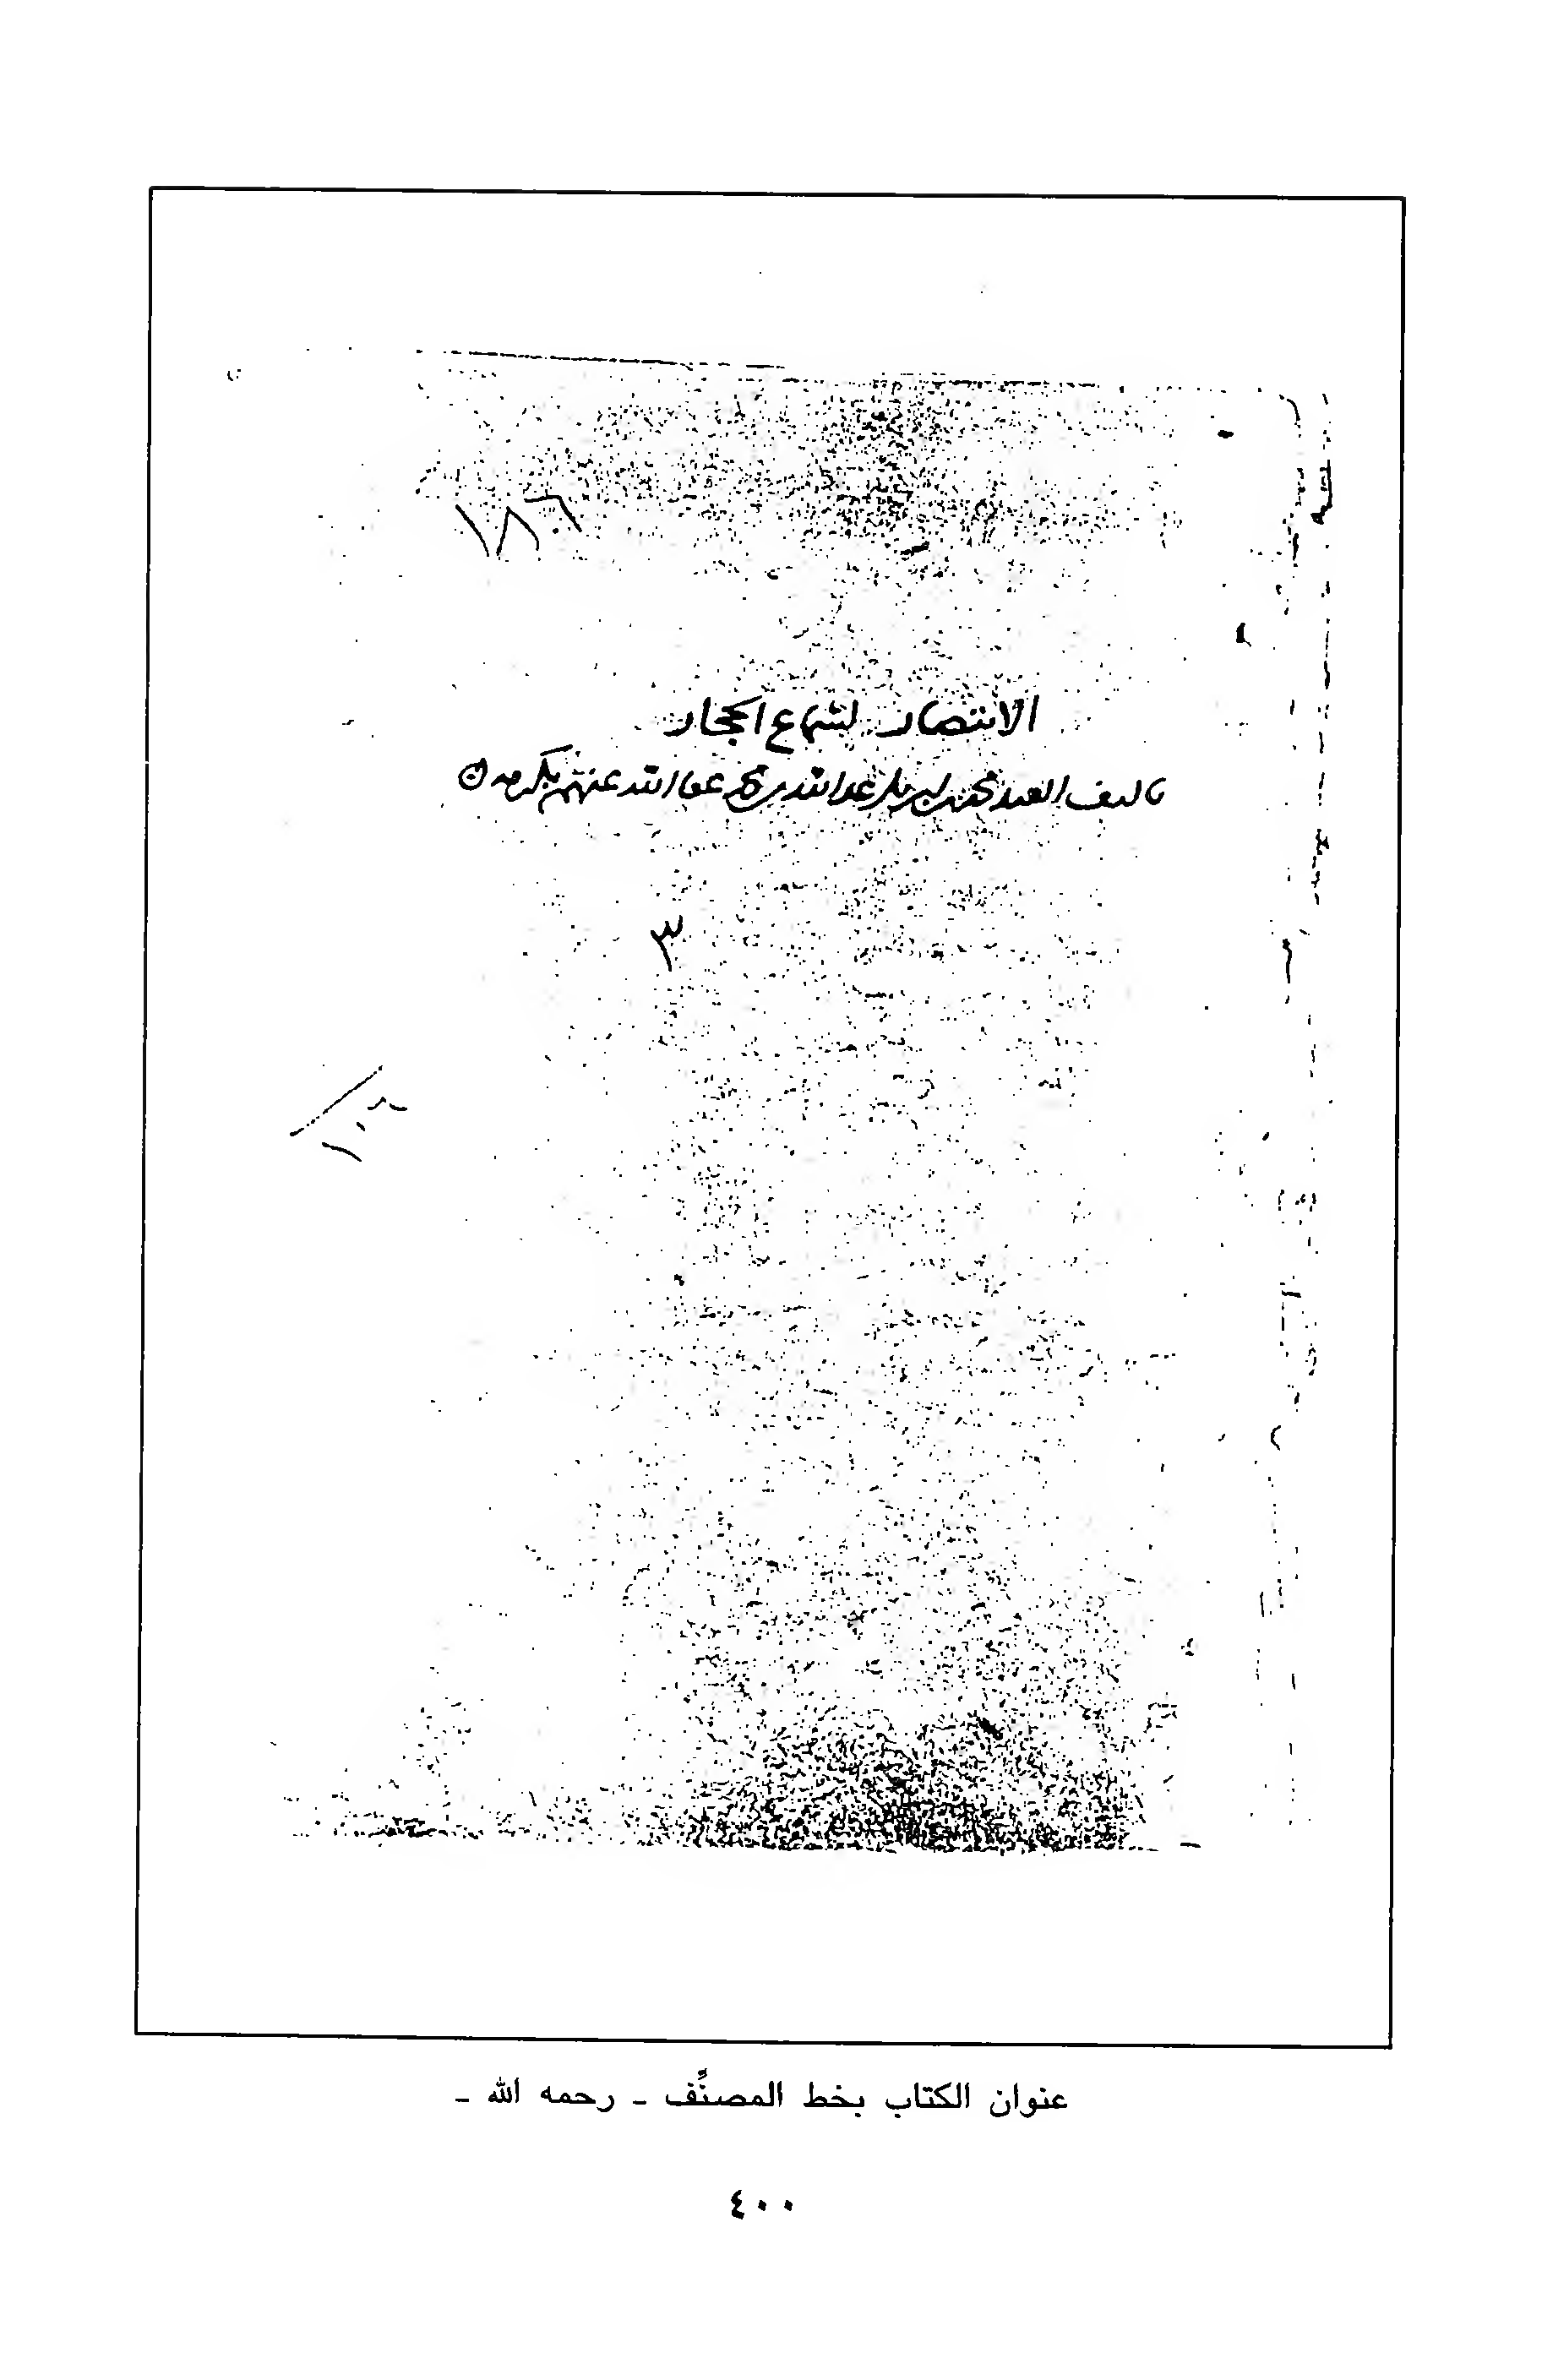 ١٨٦
الانتصار لسماع الحجار
تاليف العبد محمد بن ابي بكر عبد الله بن محمد عفا الله عنهم بكرمه
٣
١٠٦
عنوان الكتاب بخط المصنِّف - رحمه الله -
٤٠٠